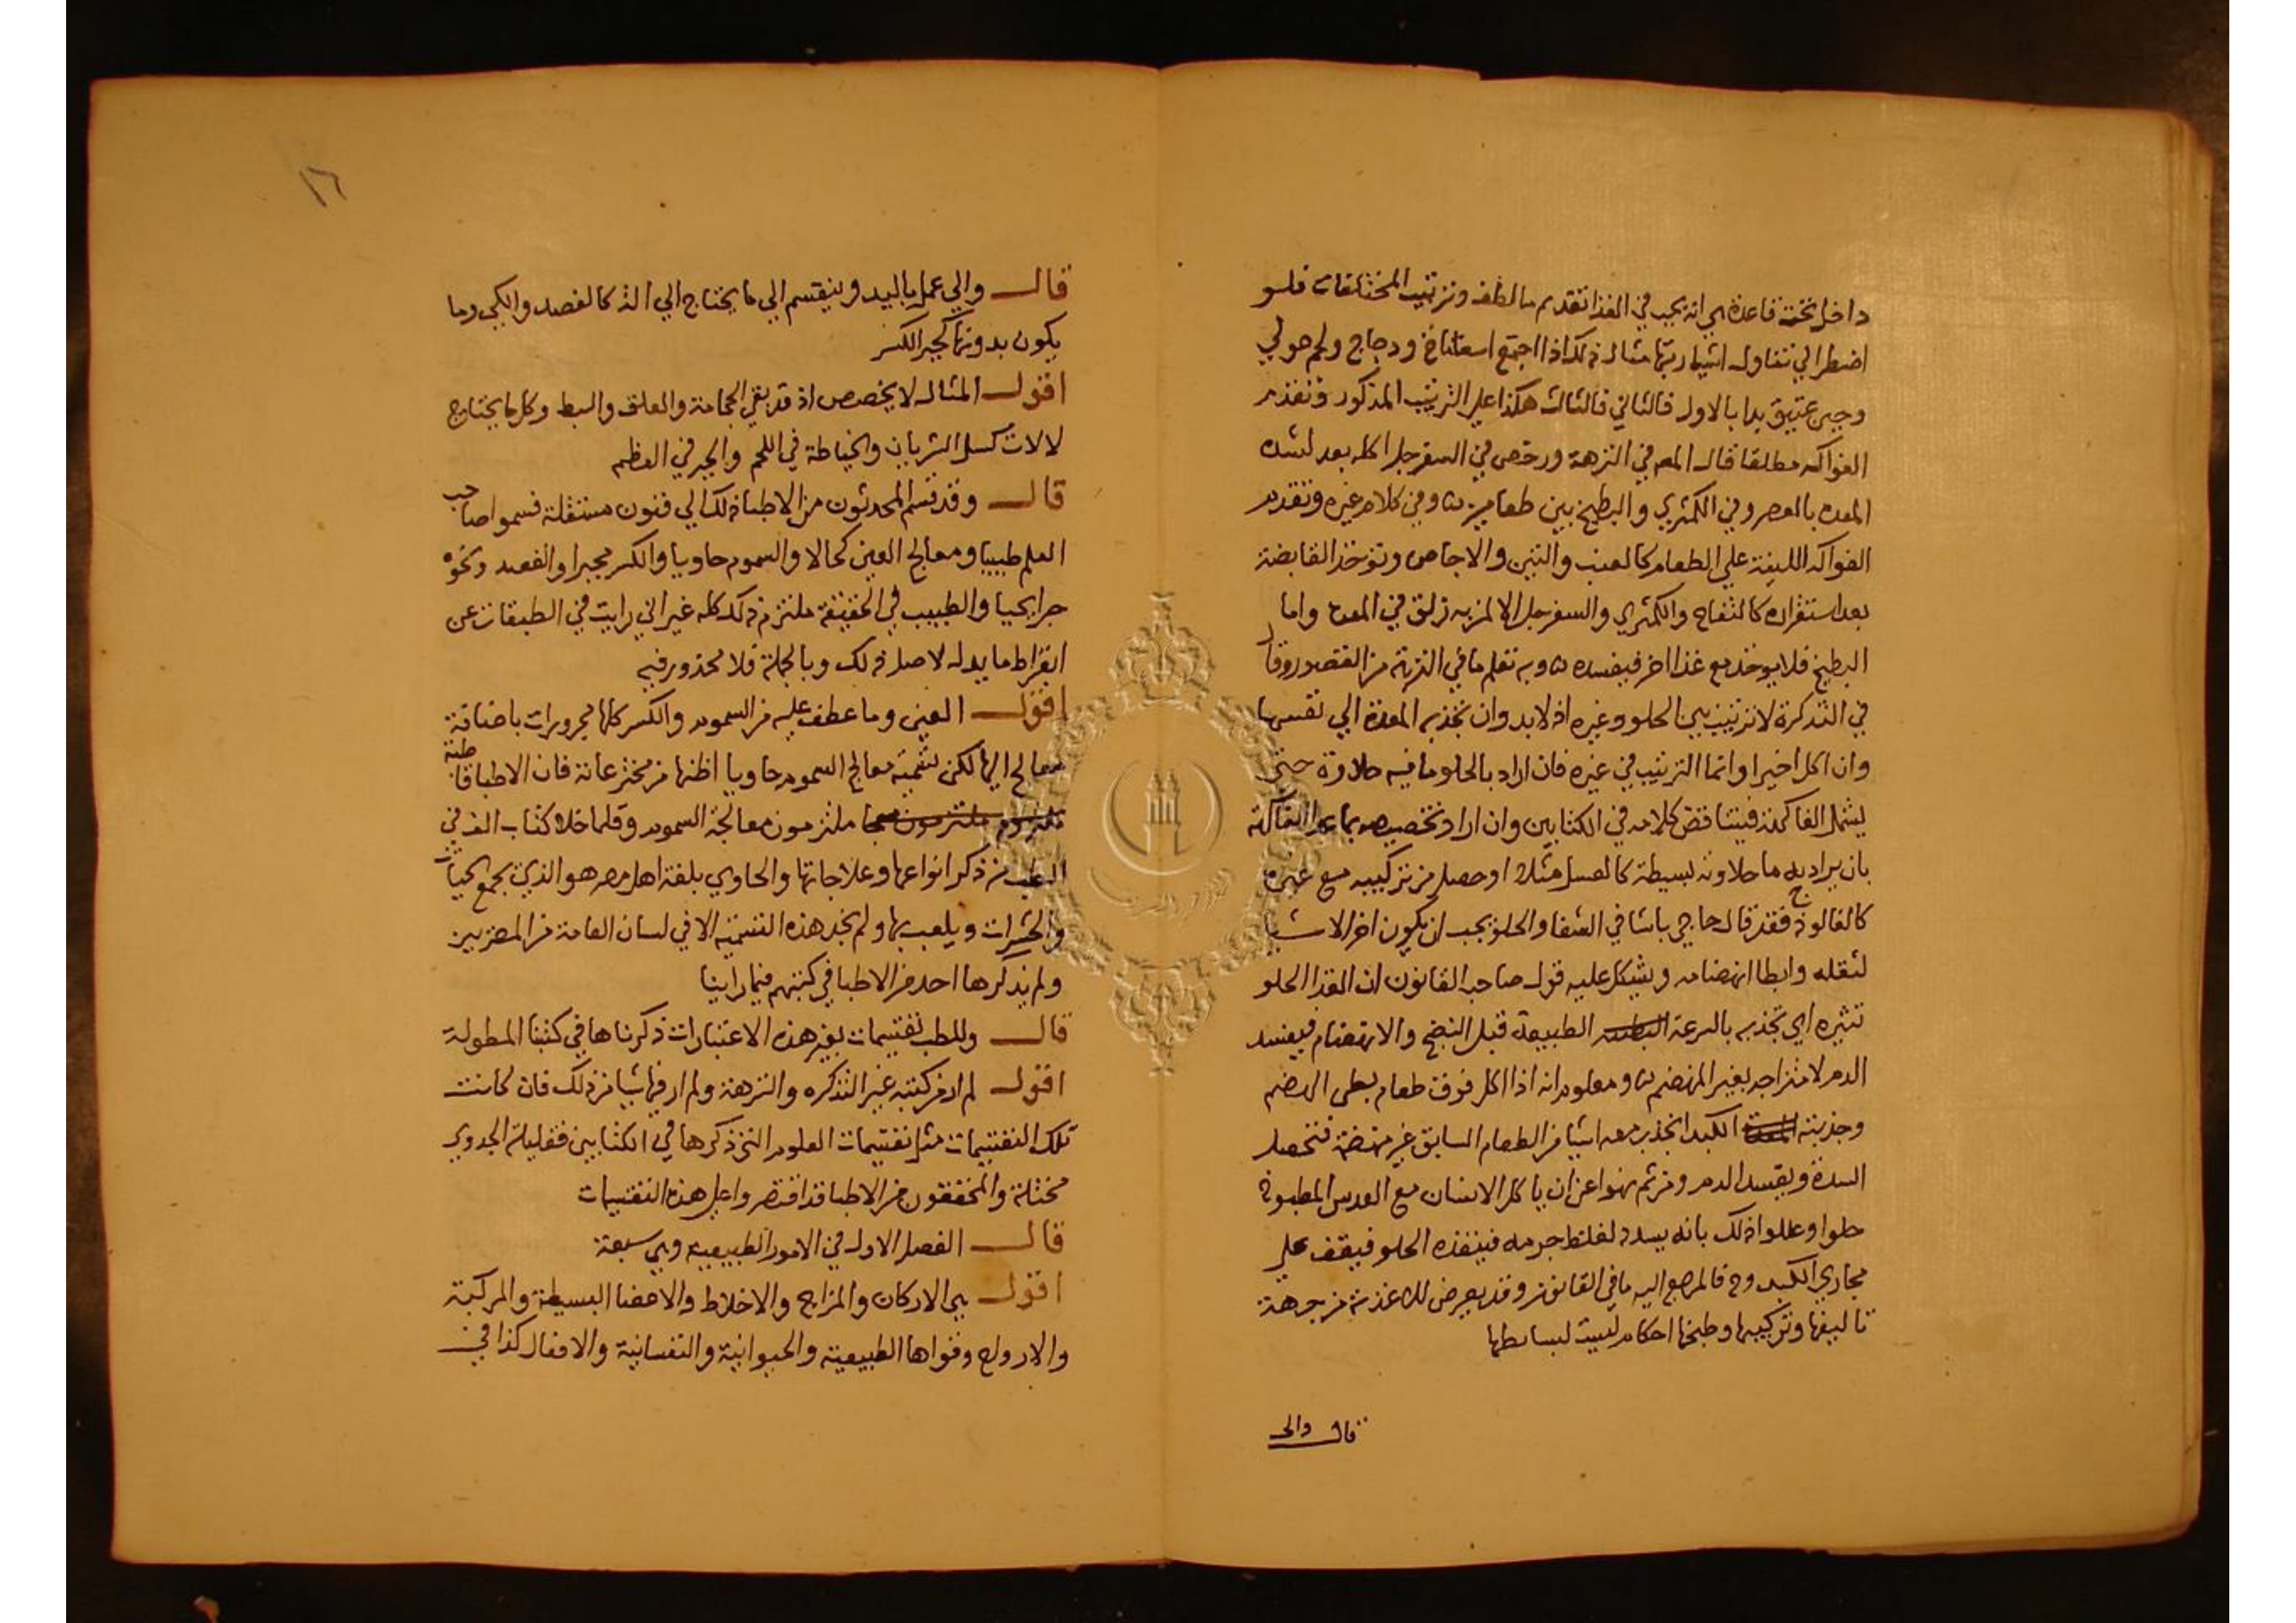 داخل تحته قاعدة هي انه يجب في الغذا تقديم ما لطف وترتيب المختلفات فلو
اضطر الي تناول اشيا رتبها مثال ذلك اذا اجتمع اسفاناخ ودجاج ولحم حولي
وجبن عتيق بدا بالاول فالثاني فالثالث هكذا علي الترتيب المذكور وتقدم
الفواكه مطلقا قال المص في النزهة ورخص في السفرجل اكله بعد لشده
المعده بالعصر وفي الكمثري والبطيخ بين طعامين وفي كلام غيره وتقديم
الفواكه اللينة علي الطعام كالعنب والتين والاجاص وتوخذ القابضة
بعد استقراره كالتفاح والكمثري والسفرجل الا لمن به زلق في المعدة واما
البطيخ فلا يوخذ مع غذا اخر فيفسده وبه تعلم ما في النزهة من القصور وقال
في التذكرة لا ترتيب بين الحلو وغيره اذ لابد وان تجذبه المعدة الي نفسها
وان اكل اخيرا وانما الترتيب في غيره فان اراد بالحلو ما فيه حلاوة حتي
يشمل الفاكهة فيتناقض كلامه في الكتابين وان اراد تخصيصه بما عدا الفاكهة
بان يراد به ما حلاوته بسيطة كالعسل مثلا او حصل من تركيبه مع غيره
كالفالوذج فقد قال حاجي باشا في الشفا والحلو يجب ان يكون اخر الاشيا
لثقله وابطا انهضامه ويشكل عليه قول صاحب القانون ان الغذا الحلو
تنثيره اي تجذبه بالسرعة الطبيعة قبل النضج والانهضام فيفسد
الدم لامتزاجه بغير المنهضم ومعلوم انه اذا اكل فوق طعام بطي الهضم
وجذبته الكبد انجذب معه اشيا من الطعام السابق غير منهضمة فتحصل
السدة ويفسد الدم ومن ثم نهوا عن ان ياكل الانسان مع العدس المطبوخ
حلوا وعللوا ذلك بانه يسدد لغلظ جرمه فينفذه الحلو فيقف علي
مجاري الكبد وح فالمرجع اليه ما في القانون وقد يعرض للاغذية من جهة
تاليفها وتركيبها وطبخها احكام ليست لبسايطها
قال والي
١٦
قال والي عمل باليد وينقسم الي ما يحتاج الي الة كالفصد والكي وما
يكون بدونها كجبر الكسر
اقول المثال لا يخصص اذ قد بقي الحجامة والعلق والبط وكل ما يحتاج
لالات كسل الشريان والخياطة في اللحم والجبر في العظم
قال وقد قسم المحدثون من الاطبا ذلك الي فنون مستقلة فسموا صاحب
العلم طبيبا ومعالج العين كحالا والسموم حاويا والكسر مجبرا والفصد ونحوه
جرايحيا والطبيب في الحقيقة ملتزم ذلك كله غير اني رايت في الطبقات عن
ابقراط ما يدل لاصل ذلك وبالجملة فلا محذور فيه
اقول العين وما عطف عليه من السموم والكسر كلها مجرورات باضافة
معالج اليها لكن تسمية معالج السموم حاويا اظنها من مخترعاته فان الاطبا قاطبة
ملتزمون معالجة السموم وقلما خلا كتاب الف في
الطب من ذكر انواعها وعلاجاتها والحاوي بلغة اهل مصر هو الذي يجمع الحيات
والحشرات ويلعب بها ولم نجد هذه التسمية الا في لسان العامة من المصريين
ولم يذكرها احد من الاطبا في كتبهم فيما راينا
قال وللطب تقسيمات بغير هذه الاعتبارات ذكرناها في كتبنا المطولة
اقول لم ار من كتبه غير التذكره والنزهة ولم ار فيها شيا من ذلك فان كانت
تلك التقسيمات مثل تقسيمات العلوم التي ذكرها في الكتابين فقليلة الجدوي
مختلة والمحققون من الاطبا قد اقتصروا علي هذه التقسيمات
قال الفصل الاول في الامور الطبيعيه وهي سبعة
اقول هي الاركان والمزاج والاخلاط والاعضا البسيطة والمركبة
والارواح وقواها الطبيعية والحيوانية والنفسانية والافعال كذا في